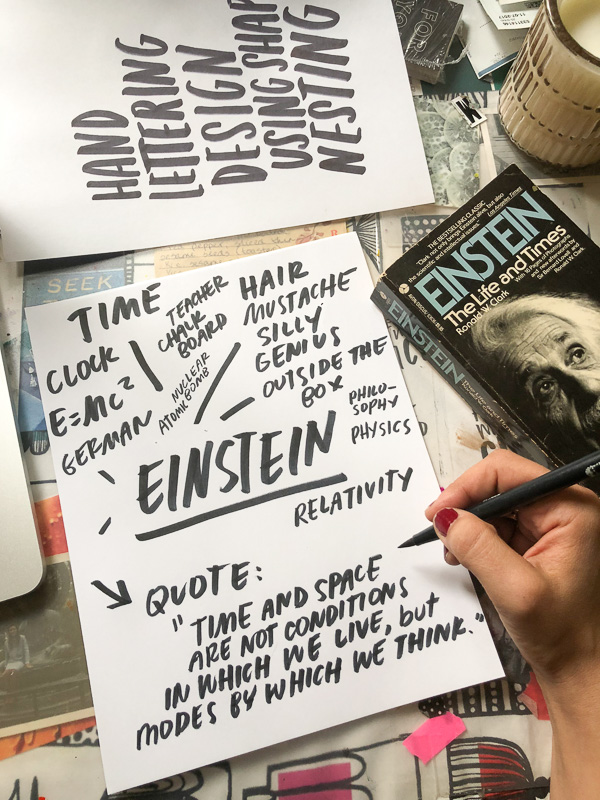 HAND
LETTERING
DESIGN
USING SHAP
NESTING
FOR
YO
K
THE BESTSELLING CLASSIC
Los Angeles Times
EINSTEIN
The Life and Times
Ronald W. Clark
EINSTEIN
SEEK
TIME
CLOCK
E=MC²
GERMAN
TEACHER
CHALK
BOARD
NUCLEAR
ATOMIC BOMB
HAIR
MUSTACHE
SILLY
GENIUS
OUTSIDE THE
BOX
PHILO-
SOPHY
PHYSICS
EINSTEIN
RELATIVITY
QUOTE:
"TIME AND SPACE
ARE NOT CONDITIONS
IN WHICH WE LIVE, but
MODES BY WHICH WE THINK."